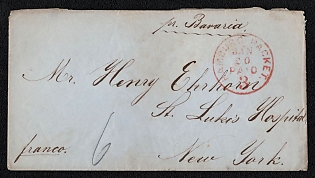 pr. Bavaria
PACKET
20
PAID
3
Mr. Henry Ehrhorn
St. Lukis Hospital
6
franco.
New York.